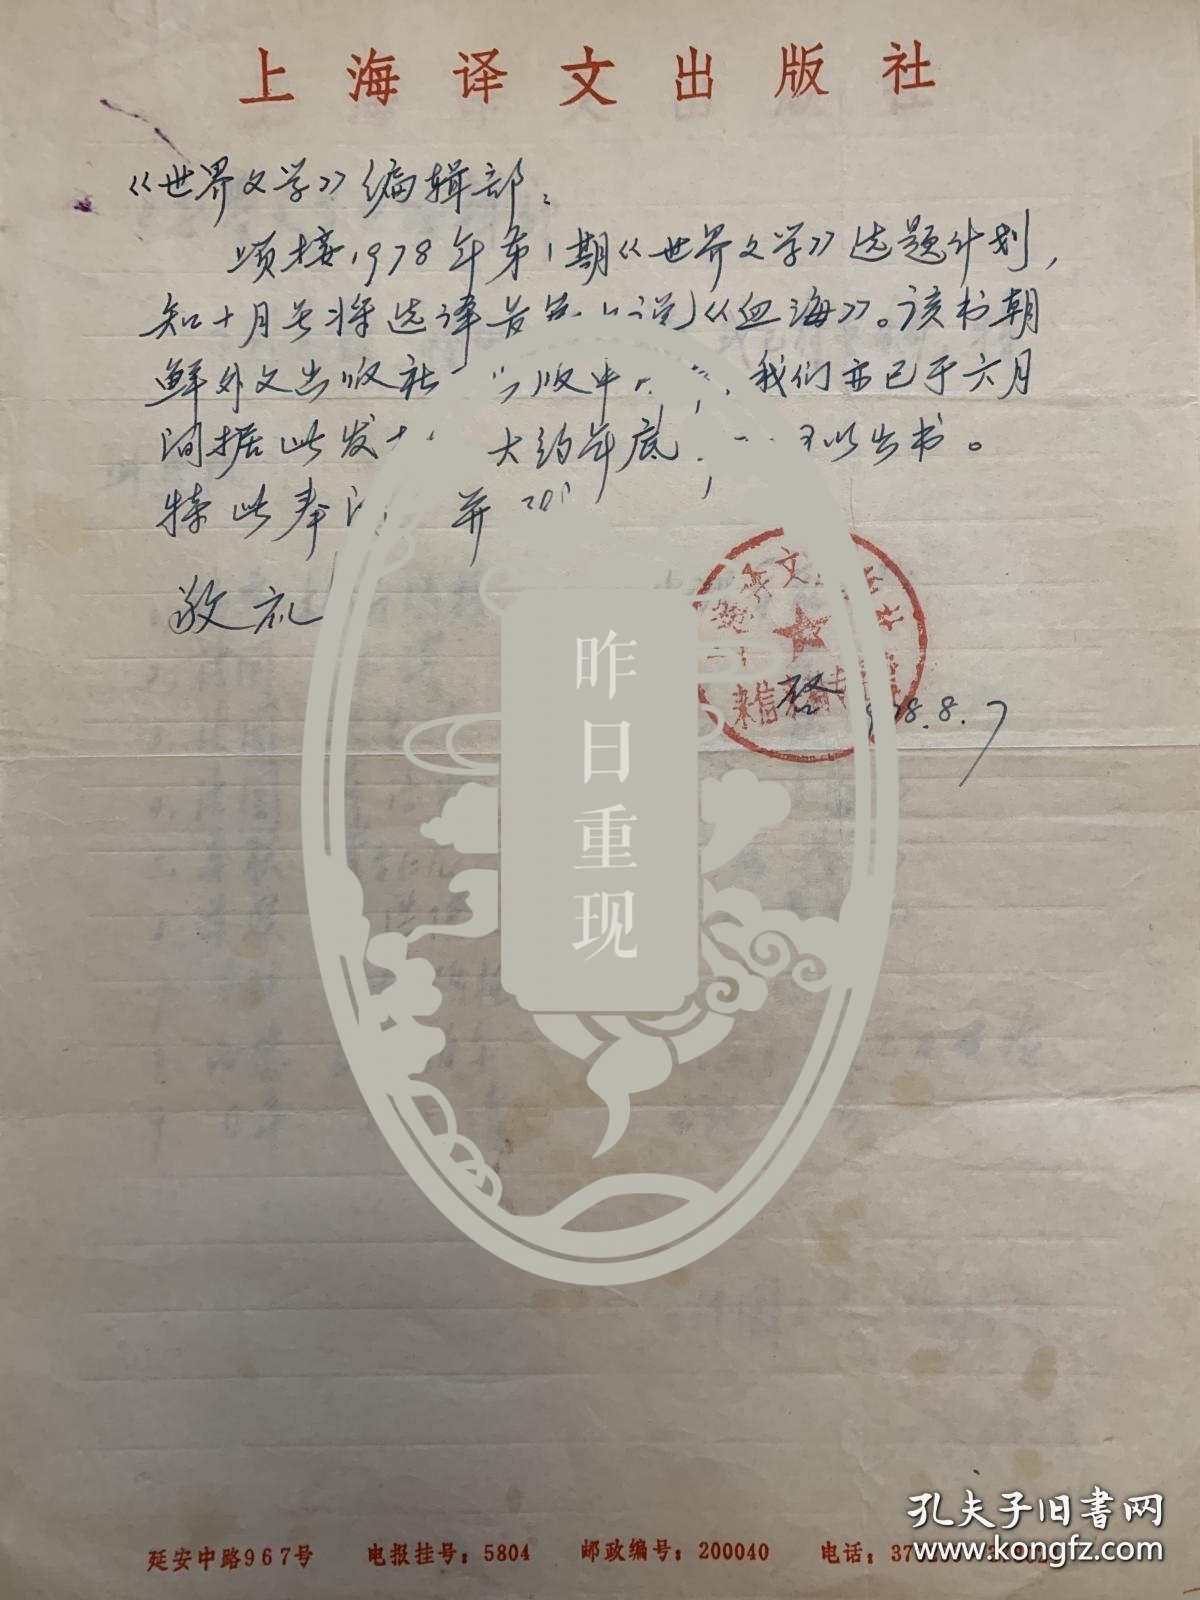 上海译文出版社
《世界文学》编辑部：
顷接1978年第1期《世界文学》选题计划，
知十月号将选译 《血海》。该书朝
鲜外文出版社 版中 我们亦已于六月
间据此发 大约年底 以出书。
特此奉 并
敬礼
文
来信
启 78.8.7
昨日重现
孔夫子旧书网
www.kongfz.com
延安中路967号 电报挂号：5804 邮政编号：200040 电话：37